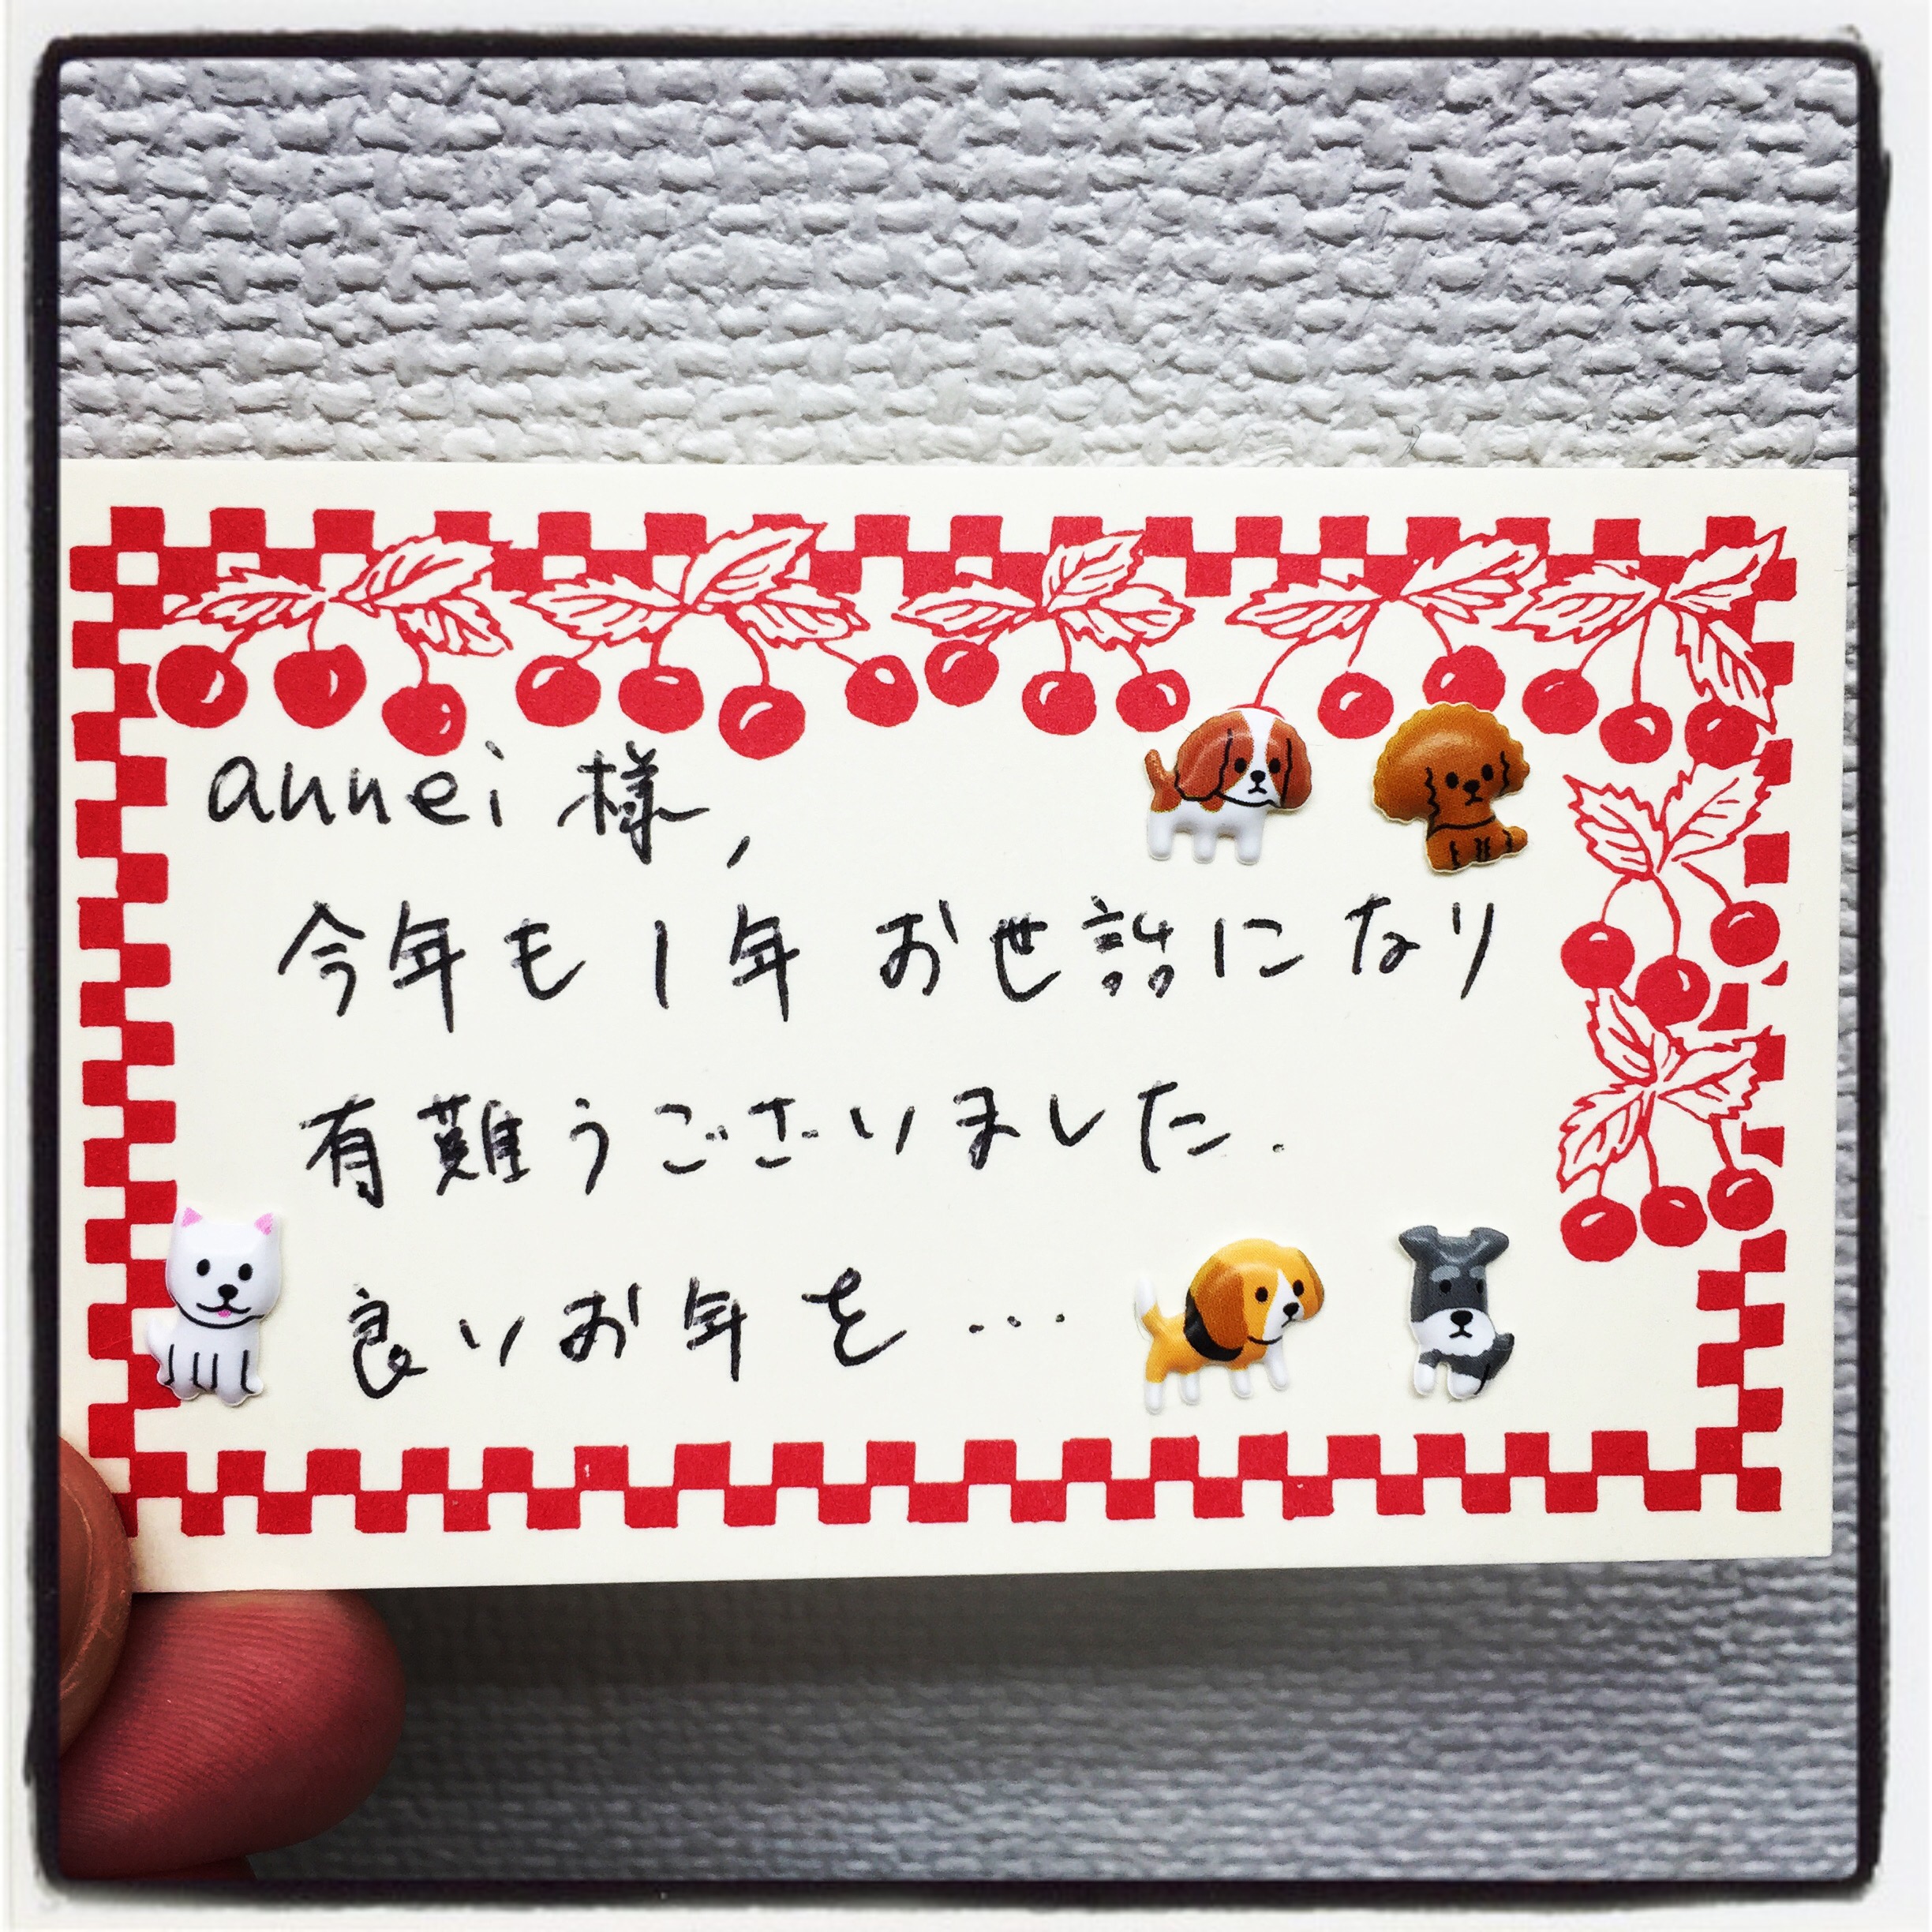 annei 様,
今年も1年 お世話になり
有難うございました.
良いお年を...